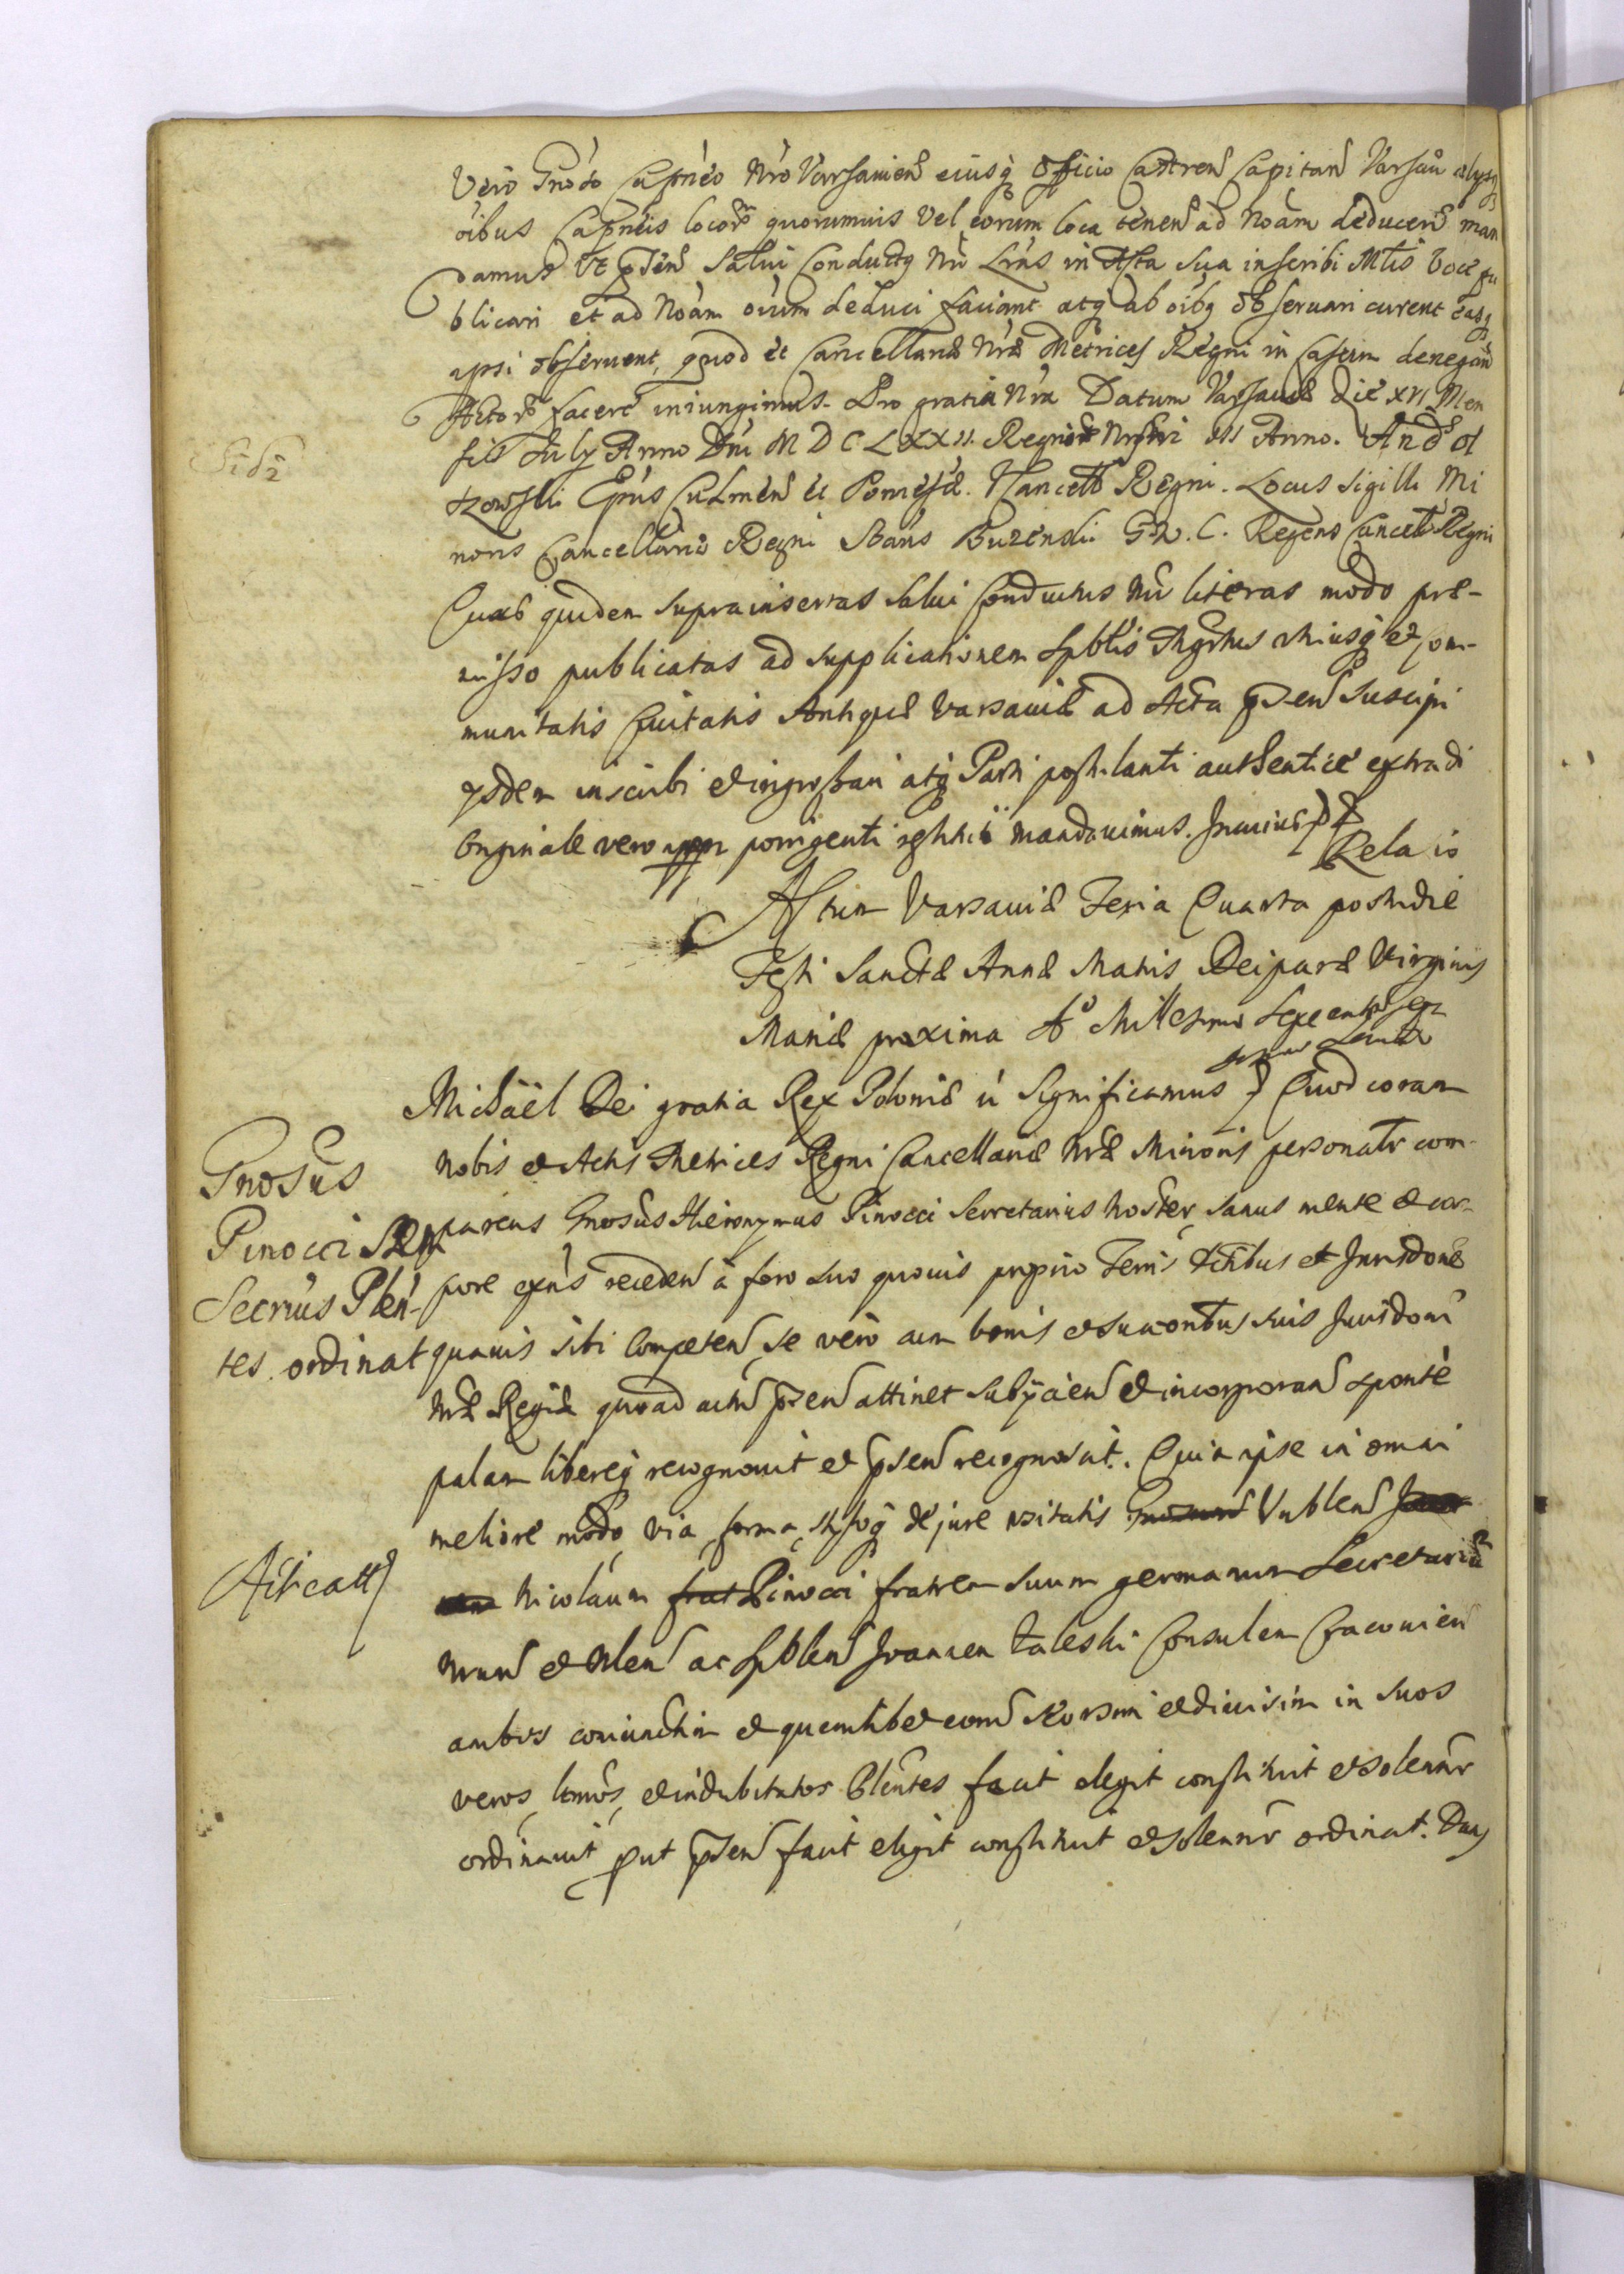 Vero Gnoso Capneo Nro Varsavien eiusq Officio Castren Capitan Varsavi alysq
oibus Capneis locor quorumuis Vel eorum loca tenen ad Noam deducen man
damus Vt pnsen Salui Conductq Nri Lras in Acta Sua inscribi Mtis Voce pu
blicari et ad Noam oium deduci faciant atq ab oibq obseruari curent easq
ipsi obseruent, quod et Cancellariæ Nræ Metrices Regni in Casum denegaon
Actor facere iniungimus. Pro gratia Nra Datum Varsauiæ Die XVI Men
sis July Anno Dni M D C L X X II. Regnor Nrorum III Anno. And Ol
szowski Epus Culmen et Pomesa. Vcancell Regni. Locus Sigilli Mi
noris Cancellariæ Regni Stans Buzenski G. R. C. Regens Cancell Regni
Quas quidem suprainsertas salui Conductus Nri literas modo præ-
misso publicatas ad supplicationem Spblis Mgrtus utriusq et com-
munitatis Ciuitatis Antiquæ Varsauiæ ad Acta pnsen suscipi
ysdem inscribi et ingrossari atq Parti postulanti authentice extradi
originale vero porrigenti restitui mandauimus.
Rela io
Actum Varsauiæ Feria Quarta postridie
Festi Sanctæ Annæ Matris Deiparæ Virginis
Mariæ proxima Ao Millesimo Sexcento Sep
Michaël Dei gratia Rex Poloniæ Significamus Quod coram
Gnosus
nobis et Actis Metrices Regni Cancellariæ Nræ Minoris personatr com-
Pinocci
parens Gnosus Hieronymus Pinocci Secretarius Noster, sanus mente et cor-
Secrius Plen-
pore exns receden à foro suo quouis proprio Terris Actibus et Jurisdone
tes ordinat
quauis sibi Competen, se vero cum bonis et succontbus suis Jurisdoni
Nræ Regiæ quoad actum pnsen attinet subijcien et incorporan sponte
palam libereq recognouit et pnsen recognoscit. Quia ipse in omni
meliore modo, via, forma, de jure usitatis Vublen
Aticatt
Nicolaum Pinocci fratrem suum germanum Secretariu
Nrum et Nlen ac Spblen Joannem Zaleski Consulem Cracouien
ambos coniunctim et quemlibet eorum seorsum et diuisim in suos
veros, ltmos, et indubitatos Plentes facit elegit constituit et solennr
ordinauit put pnsen facit eligit constituit et solennr ordinat. Dans